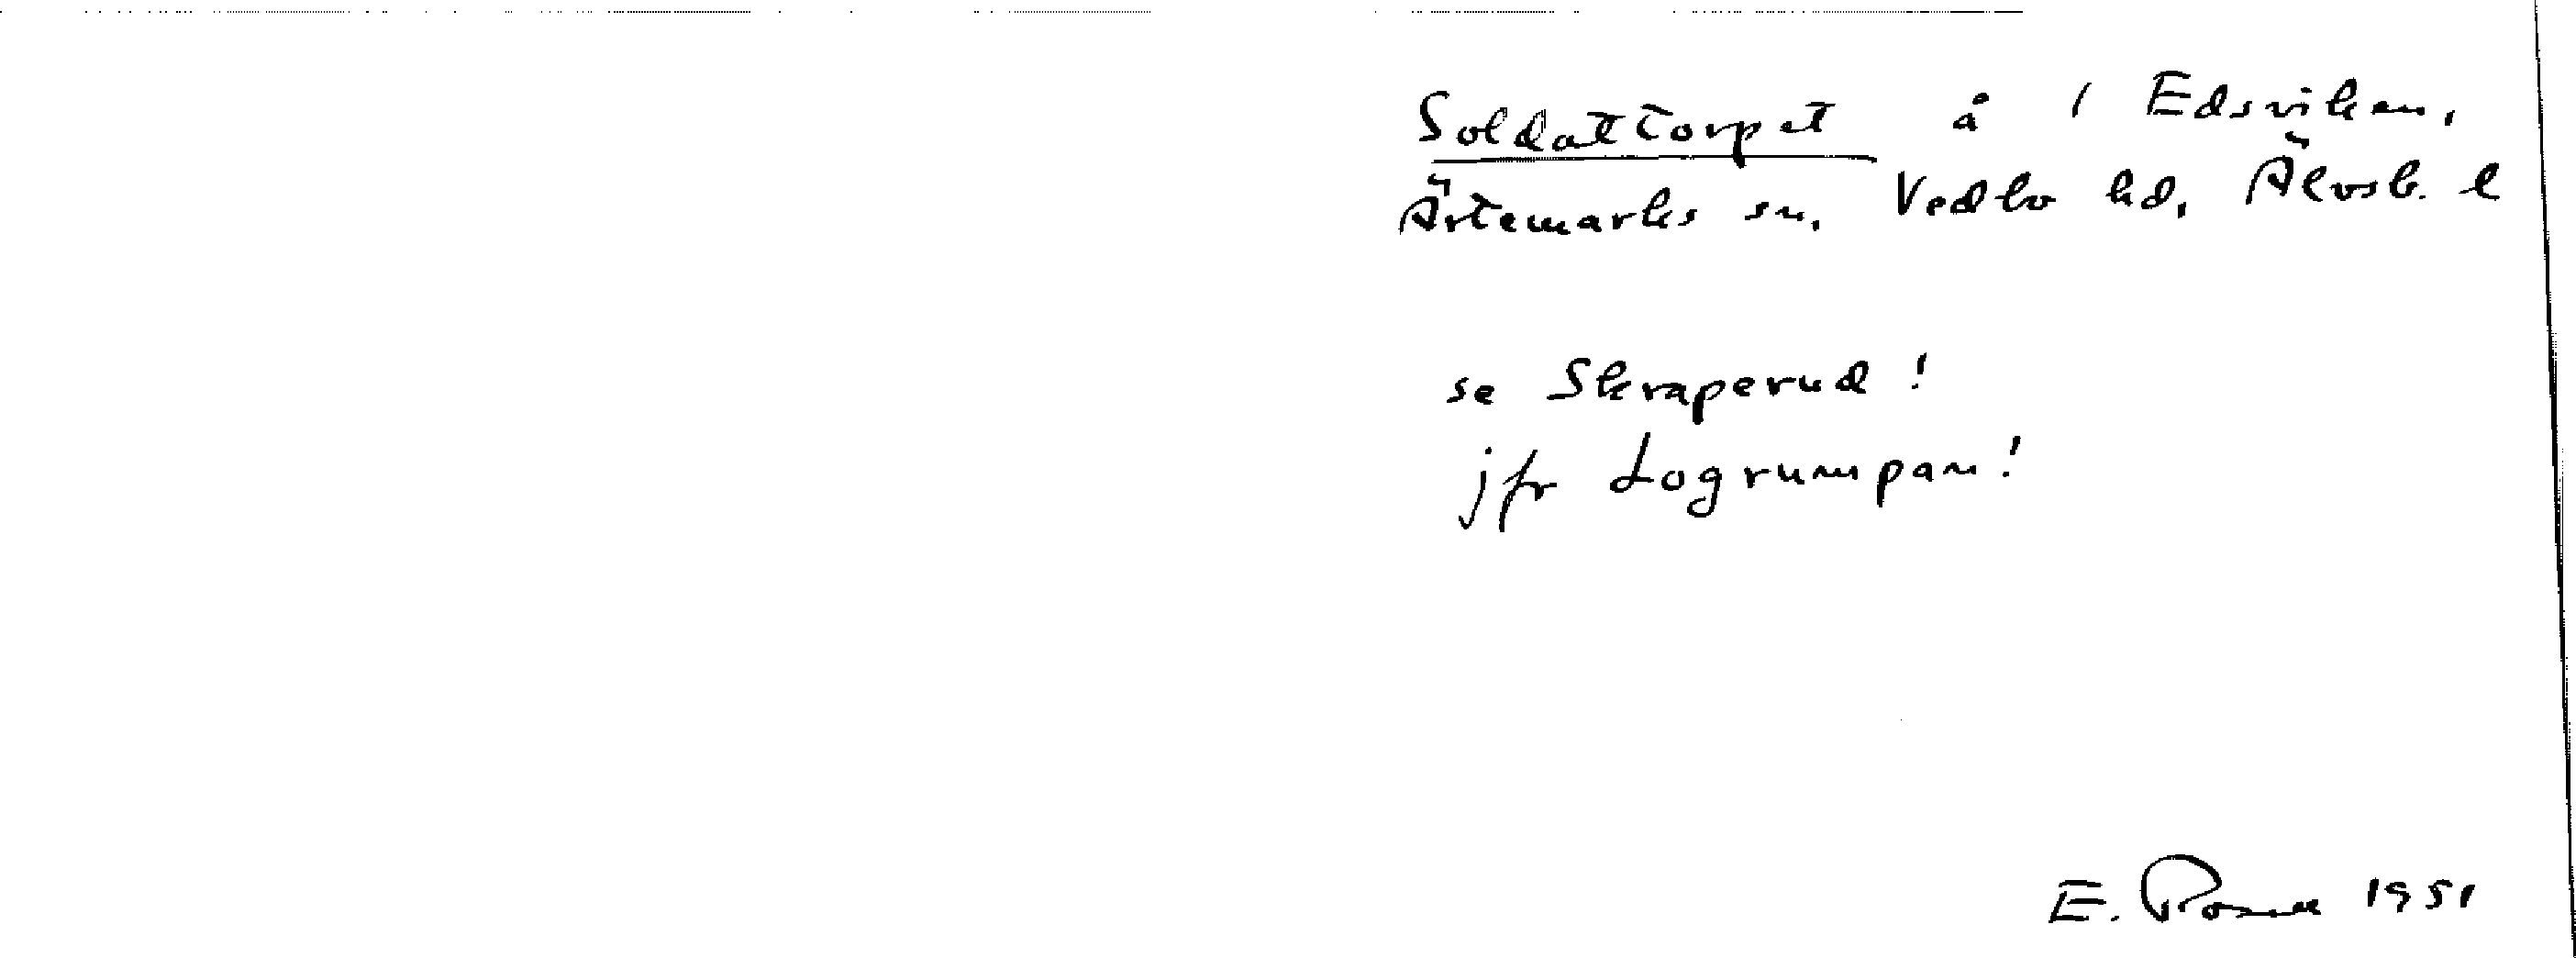 Soldattorpet å 1 Edsviken,
Ärtemarks sn, Vedbo hd, Älvsb. l
se Skraperud!
jfr Logrumpan!
E. 1951